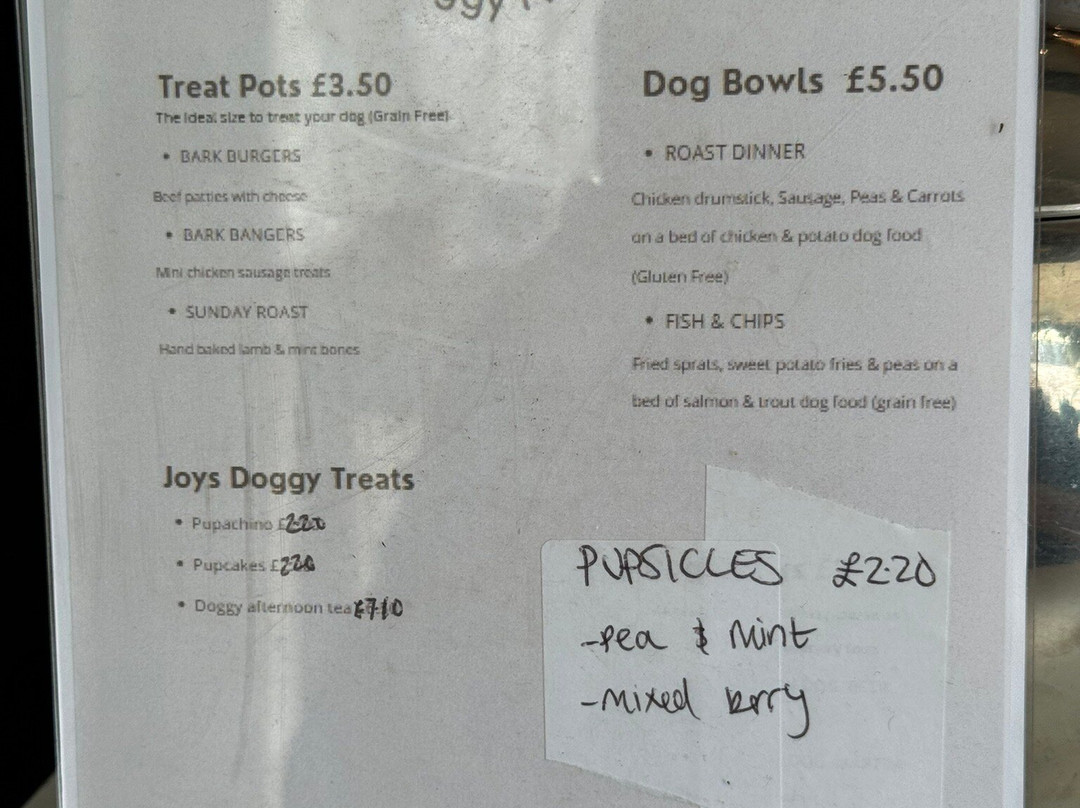 Treat Pots £3.50
The ideal size to treat your dog (Grain Free)
• BARK BURGERS
Beef patties with cheese
• BARK BANGERS
Mini chicken sausage treats
• SUNDAY ROAST
Hand baked lamb & mint bones
Dog Bowls £5.50
• ROAST DINNER
Chicken drumstick, Sausage, Peas & Carrots
on a bed of chicken & potato dog food
(Gluten Free)
• FISH & CHIPS
Fried sprats, sweet potato fries & peas on a
bed of salmon & trout dog food (grain free)
Joys Doggy Treats
• Pupachino £2.20
• Pupcakes £2.20
• Doggy afternoon tea £7.10
PUPSICLES £2.20
-Pea & Mint
-Mixed Berry